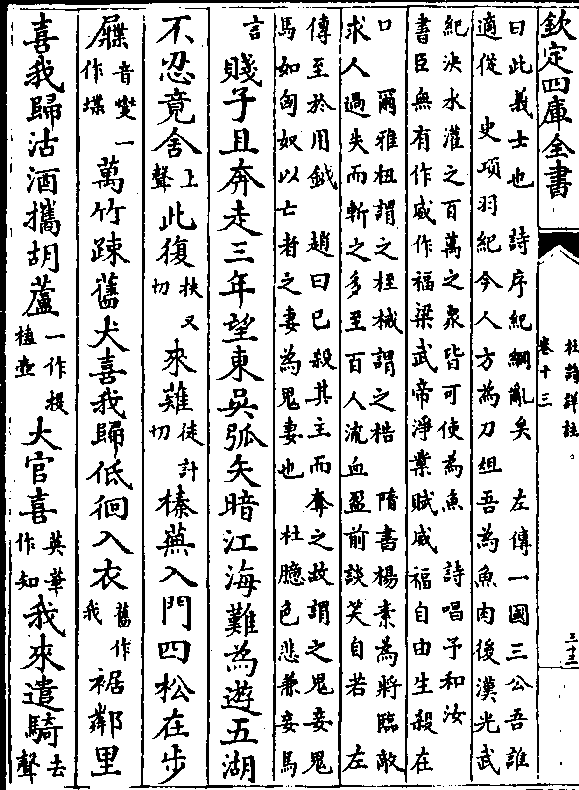 欽定四庫全書
曰此義士也　詩序紀綱亂矣　左傳一國三公吾誰
適從　史項羽紀今人方為刀俎吾為魚肉後漢光武
紀決水灌之百萬之衆皆可使為魚　詩唱予和汝
書臣無有作威作福梁武帝淨業賦威福自由生殺在
口　爾雅杻謂之桎械謂之梏　隋書楊素為將臨敵
求人過失而斬之多至百人流血盈前談笑自若　左
傳至於用鉞　趙曰已殺其主而奪之故謂之鬼妾鬼
馬如匈奴以亡者之妻為鬼妻也　杜臆色悲兼妾馬
言　賤子且奔走三年望東吳弧矢暗江海難為遊五湖
不忍竟舍上聲此復扶又切來薙徒計切榛蕪入門四松在步
屧音燮一作堞萬竹疎舊犬喜我歸低徊入衣舊作我裾鄰里
喜我歸沽酒攜胡蘆一作提榼壺大官喜英華作知我來遣騎去聲
杜詩詳註。
卷十三
三十三